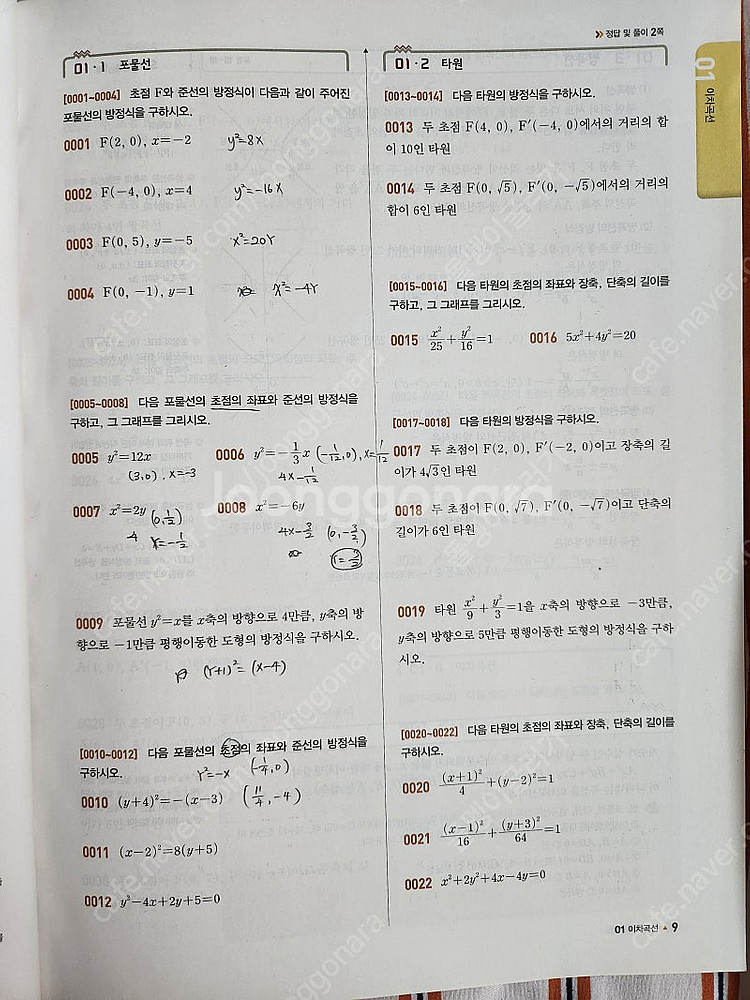 정답 및 풀이 2쪽
01
이차곡선
01·1 포물선
[0001~0004] 초점 F와 준선의 방정식이 다음과 같이 주어진
포물선의 방정식을 구하시오.
0001 F(2, 0), x=-2 y²=8x
0002 F(-4, 0), x=4 y²=-16x
0003 F(0, 5), y=-5 x²=20y
0004 F(0, -1), y=1 x²=-4y
[0005~0008] 다음 포물선의 초점의 좌표와 준선의 방정식을
구하고, 그 그래프를 그리시오.
0005 y²=12x
(3,0), x=-3
0006 y²=-1/3 x (-1/12, 0), x=1/12
4x-1/12
0007 x²=2y (0, 1/2)
4 y=-1/2
0008 x²=-6y
4x-3/2 (0, -3/2)
0009 포물선 y²=x를 x축의 방향으로 4만큼, y축의 방
향으로 -1만큼 평행이동한 도형의 방정식을 구하시오.
(y+1)²=(x-4)
[0010~0012] 다음 포물선의 초점의 좌표와 준선의 방정식을
구하시오. y²=-x (-1/4, 0)
0010 (y+4)²=-(x-3) (11/4, -4)
0011 (x-2)²=8(y+5)
0012 y²-4x+2y+5=0
01·2 타원
[0013~0014] 다음 타원의 방정식을 구하시오.
0013 두 초점 F(4, 0), F′(-4, 0)에서의 거리의 합
이 10인 타원
0014 두 초점 F(0, √5), F′(0, -√5)에서의 거리의
합이 6인 타원
[0015~0016] 다음 타원의 초점의 좌표와 장축, 단축의 길이를
구하고, 그 그래프를 그리시오.
0015 x²/25+y²/16=1 0016 5x²+4y²=20
[0017~0018] 다음 타원의 방정식을 구하시오.
0017 두 초점이 F(2, 0), F′(-2, 0)이고 장축의 길
이가 4√3인 타원
0018 두 초점이 F(0, √7), F′(0, -√7)이고 단축의
길이가 6인 타원
0019 타원 x²/9+y²/3=1을 x축의 방향으로 -3만큼,
y축의 방향으로 5만큼 평행이동한 도형의 방정식을 구하
시오.
[0020~0022] 다음 타원의 초점의 좌표와 장축, 단축의 길이를
구하시오.
0020 (x+1)²/4+(y-2)²=1
0021 (x-1)²/16+(y+3)²/64=1
0022 x²+2y²+4x-4y=0
01 이차곡선 9
Joonggonara
cafe.naver.com